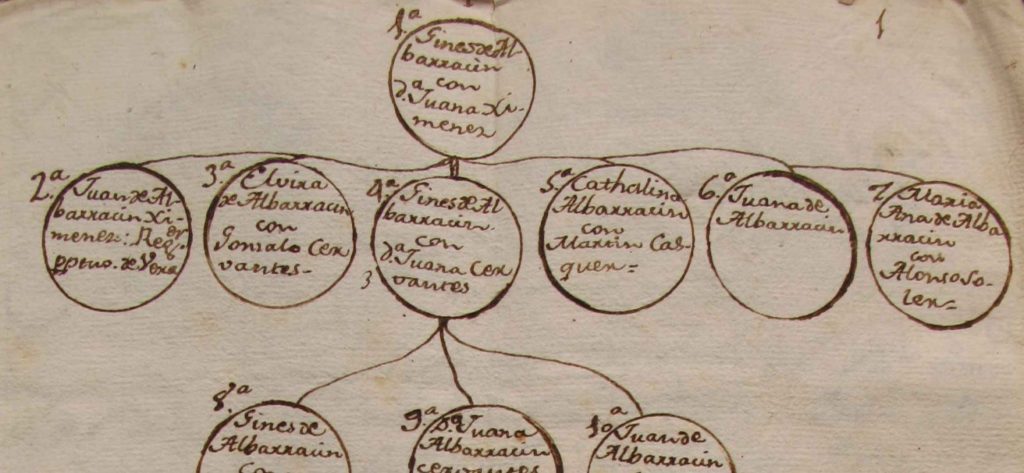 1
1.ª
Gines de Al-
barracin
con
d.ª Juana Xi-
menez
2.ª
Juan de Al-
barracin Xi-
menez: Reg.or
pptuo. de Vera
3.ª
Elvira
de Albarracin
con
Gonzalo Cer
vantes-
4.ª
Gines de Al
barracin.
con
d.ª Juana Cer
vantes
3
5.ª
Catholina
Albarracin
con
Martin Cas-
quer=
6.ª
Juana de
Albarracin
7.
Maria
Ana de Alba
rracin
con
Alonso So-
ler=
8.ª
Gines de
Albarracin
con
9.ª
D.ª Juana
Albarracin
cervantes
10ª
Juan de
Albarracin